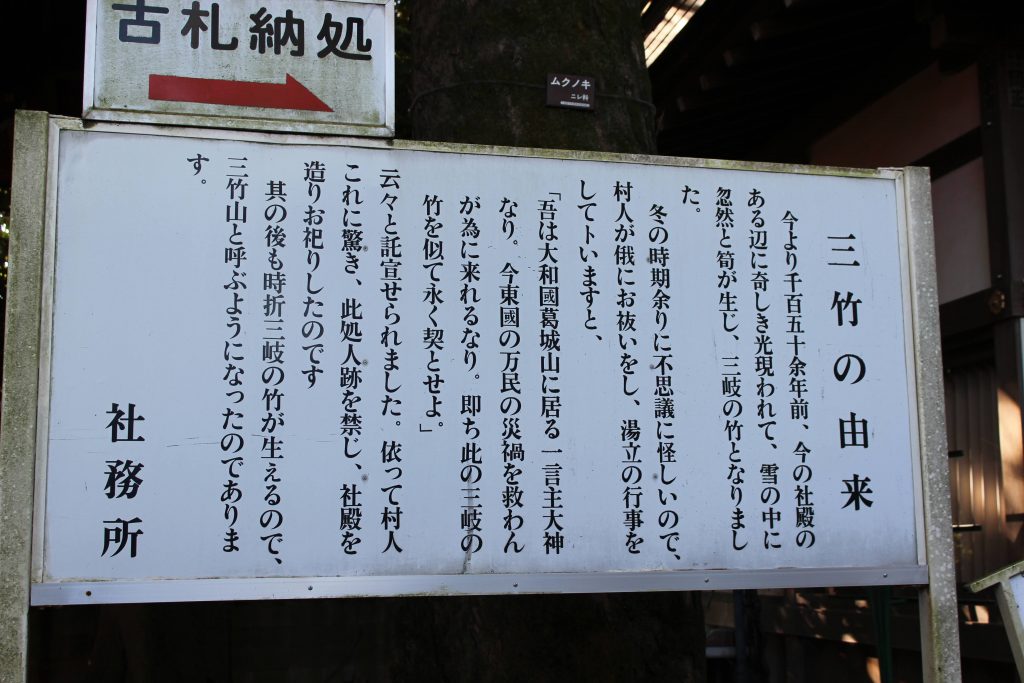 古札納処
ムクノキ
ニレ科
三竹の由来
今より千百五十余年前、今の社殿の
ある辺に奇しき光現われて、雪の中に
忽然と筍が生し、三岐の竹となりまし
た。
冬の時期余りに不思議に怪しいので、
村人が俄にお祓いをし、湯立の行事を
してトいますと、
「吾は大和國葛城山に居る一言主大神
なり。今東國の万民の災禍を救わん
が為に来れるなり。即ち此の三岐の
竹を似て永く契とせよ。」
云々と託宣せられました。依って村人
これに驚き、此処人跡を禁じ、社殿を
造りお祀りしたのです
其の後も時折三岐の竹が生えるので、
三竹山と呼ぶようになったのでありま
す。
社務所